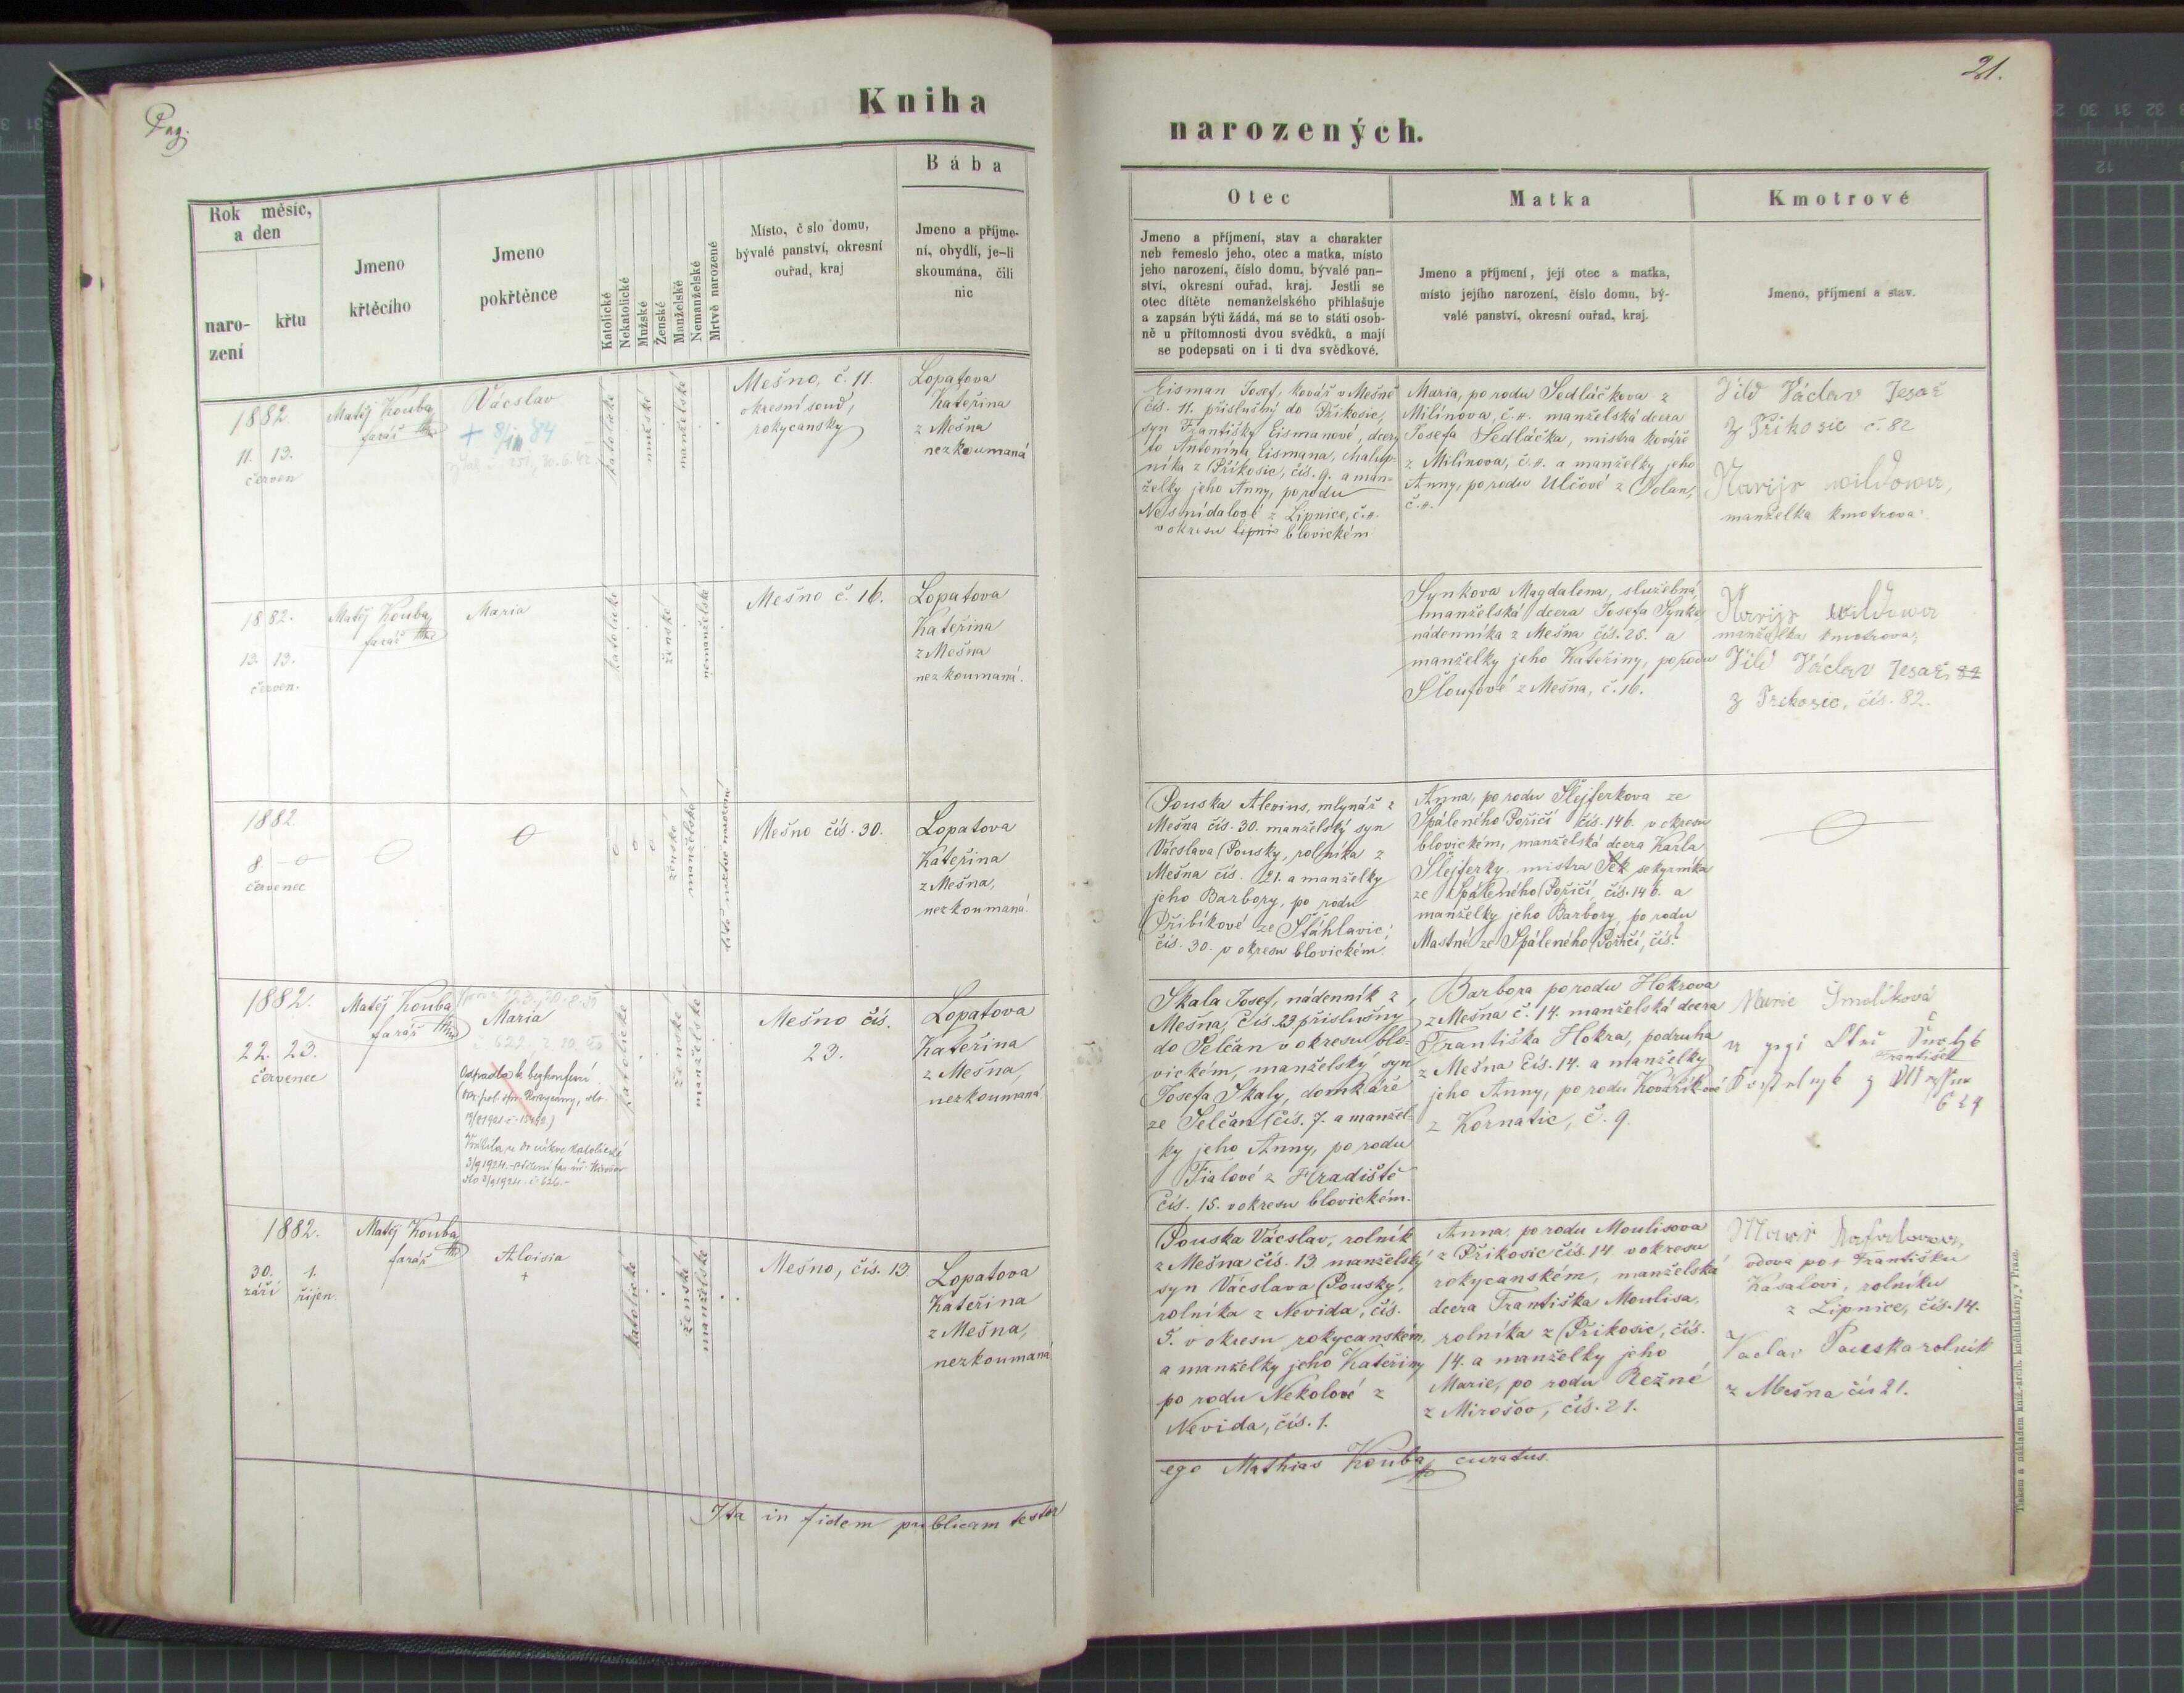 Pag.
Kniha
narozených.
21.
Rok měsíc,
a den
naro-
zení
křtu
Jmeno
křtěcího
Jmeno
pokřtěnce
Katolické
Nekatolické
Mužské
Ženské
Manželské
Nemanželské
Mrtvě narozené
Místo, č slo domu,
bývalé panství, okresní
ouřad, kraj
Bába
Jmeno a příjme-
ní, obydlí, je-li
skoumána, čili
nic
Otec
Jmeno a příjmení, stav a charakter
neb řemeslo jeho, otec a matka, místo
jeho narození, číslo domu, bývalé pan-
ství, okresní ouřad, kraj. Jestli se
otec dítěte nemanželského přihlašuje
a zapsán býti žádá, má se to státi osob-
ně u přítomnosti dvou svědků, a mají
se podepsati on i ti dva svědkové.
Matka
Jmeno a příjmení, její otec a matka,
místo jejího narození, číslo domu, bý-
valé panství, okresní ouřad, kraj.
Kmotrové
Jmeno, příjmení a stav.
1882.
11. 13.
červen
Matěj Kouba,
farář
Václav
katolické
mužské
manželské
Mešno, č. 11.
okresní soud,
rokycanský
Lopatova
Kateřina
z Mešna
nezkoumaná
Eisman Josef, kovář v Mešně
čís. 11. příslušný do Příkosic,
syn Františky Eismanové, dcery
to Antonína Eismana, chalup-
níka z Příkosic, čís. 9. a man-
želky jeho Anny, po rodu
Nesnídalové z Lipnice, č. //.
v okresu lipnic blovickém
Maria, po rodu Sedláčkova z
Milínova, č. //. manželská dcera
Josefa Sedláčka, mistra kováře
z Milínova, č. //. a manželky jeho
Anny, po rodu Ulčové z Dolan,
č. //.
Vild Václav Tesař
z Příkosic č. 82
Marije wildowa,
manželka kmotrova
1882.
13. 13.
červen.
Matěj Kouba,
farář
Maria
katolické
ženské
nemanželské
Mešno č. 16.
Lopatova
Kateřina
z Mešna
nezkoumaná.
Synkova Magdalena, služebná,
manželská dcera Josefa Synka,
nádenníka z Mešna čís. 28. a
manželky jeho Kateřiny, po rodu
Šloufové z Mešna, č. 16.
Marije wildowa
manželka kmotrova,
Vild Václav Tesař,
z Přikosic, čís. 82.
1882
8.
červenec
ženské
manželské
dítě mrtvě narozené
Mešno čís. 30.
Lopatova
Kateřina
z Mešna,
nezkoumaná.
Pouska Alevins, mlynář z
Mešna čís. 30. manželský syn
Václava Pousky, rolníka z
Mešna čís. 21. a manželky
jeho Barbory, po rodu
Přibíkové ze Šťáhlavic,
čís. 30. v okresu blovickém.
Anna, po rodu Šlejferkova ze
Spáleného Poříčí čís. 146. v okresu
blovickém, manželská dcera Karla
Šlejferky, mistra Sek sekyrníka
ze Spáleného Poříčí, čís. 146. a
manželky jeho Barbory, po rodu
Mastné ze Spáleného Poříčí, čís.?
1882.
22. 23.
červenec
Matěj Kouba,
farář
Maria
Odpadla k bezkonfesní.
Vrátila se do církve katolické
3/9 1924.
katolické
ženské
manželské
Mešno čís.
23.
Lopatova
Kateřina
z Mešna,
nezkoumaná
Skala Josef, nádenník z
Mešna, čís. 23 příslušný
do Selčan v okresu blo-
vickém, manželský syn
Josefa Skaly, domkáře
ze Selčan čís. 7. a manžel-
ky jeho Anny, po rodu
Fialové z Hradiště
čís. 15. v okresu blovickém.
Barbora po rodu Hokrova
z Mešna č. 14. manželská dcera
Františka Hokra, podruha
z Mešna čís. 14. a manželky
jeho Anny, po rodu Kovaříkové
z Kornatic, č. 9.
Marie Smolíková
František
1882.
30. 1.
září říjen.
Matěj Kouba
farář
Aloisia
+
katolické
ženské
manželské
Mešno, čís. 13.
Lopatova
Kateřina
z Mešna,
nezkoumaná
Pouska Václav, rolník
z Mešna čís. 13. manželský
syn Václava Pousky,
rolníka z Nevida, čís.
5. v okresu rokycanském,
a manželky jeho Kateřiny
po rodu Nekolové z
Nevida, čís. 1.
Anna, po rodu Moulisova
z Příkosic čís. 14 v okresu
rokycanském, manželská
dcera Františka Moulisa,
rolníka z Příkosic, čís.
14. a manželky jeho
Marie, po rodu Režné
z Mirošov, čís. 21.
vdova po † Františku
Kasalovi, rolníku
z Lipnice, čís. 14.
Václav Pauska rolník
z Mešna čís 21.
Ita in fidem publicam testor
ego Mathias Kouba, curatus.
Tiskem a nákladem kníž.-arcib. knihtiskárny v Praze.